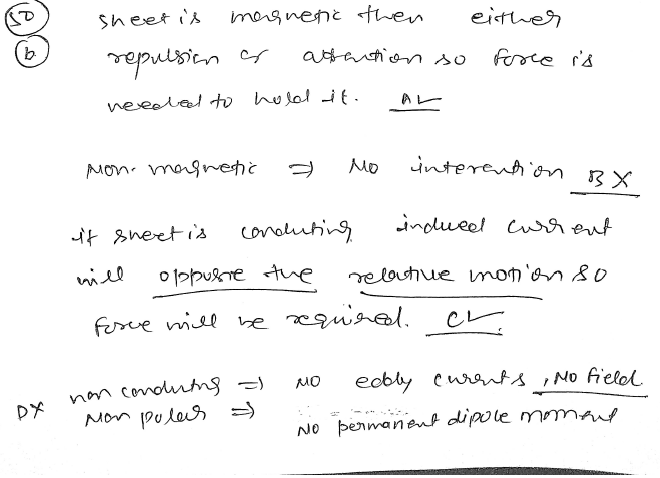 50 sheet is magnetic then either
b repulsion or attraction so force is
needed to hold it. A✓
Non-magnetic ⇒ No interention B X
if sheet is conducting induced current
will oppuse the relative motion so
force will be required. C✓.
non conducting ⇒ NO eddy currents, NO field
DX Non polar ⇒ NO permanent dipole moment